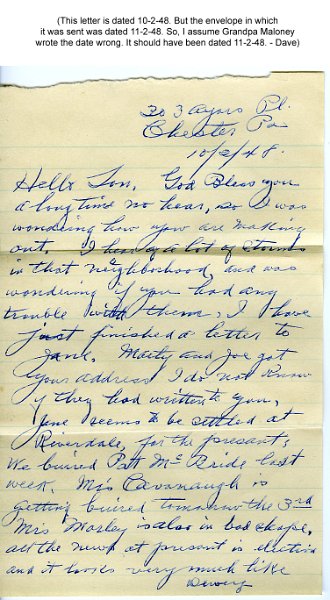 (This letter is dated 10-2-48. But the envelope in which
it was sent was dated 11-2-48. So, I assume Grandpa Maloney
wrote the date wrong. It should have been dated 11-2-48. - Dave)
203 Ayars Pl.
Chester Pa
10/2/48.
Hello Son, God Bless you
a long time no hear, so I was
wondering how you are making
out. I hear of a lot of storms
in that neighborhood, and was
wondering if you had any
trouble with them, I have
just finished a letter to
Jane. Marty and Joe got
your address I do not know
if they had written to you,
Jane seems to be settled at
Riverdale, for the present,
We buired Patt Mc Bride last
week. Mrs Cavanaugh is
getting buired tomorrow the 3rd
Mrs Morley is also in bad shape,
all the news at present is election
and it looks very much like
Dewey